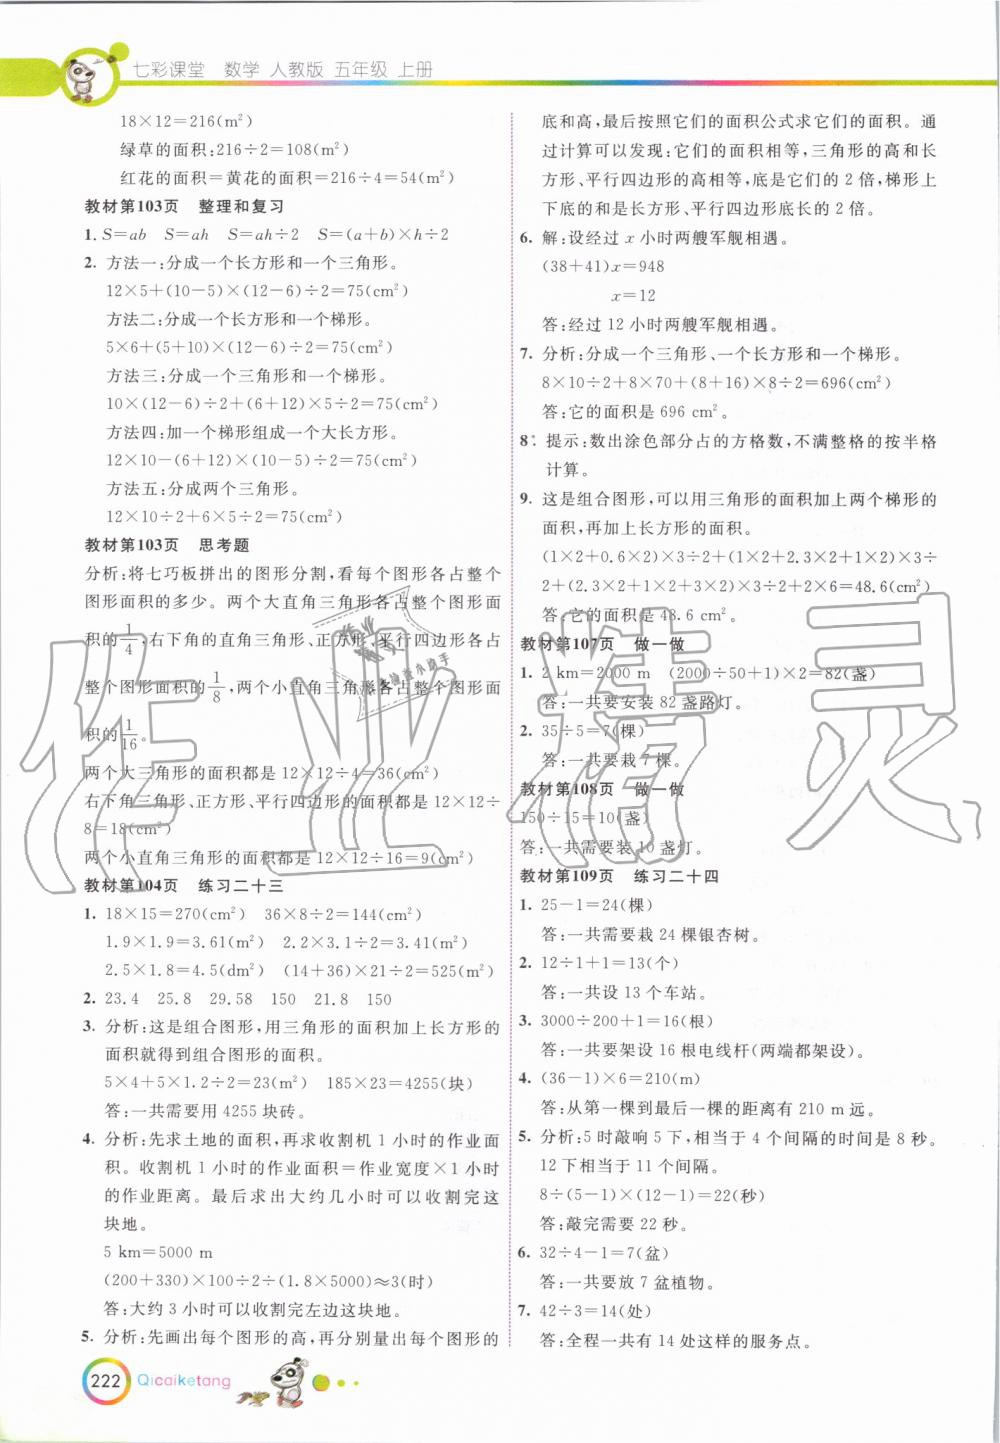 七彩课堂 数学 人教版 五年级 上册
18×12=216(m²)
绿草的面积:216÷2=108(m²)
红花的面积=黄花的面积=216÷4=54(m²)
教材第103页 整理和复习
1. S=ab S=ah S=ah÷2 S=(a+b)×h÷2
2. 方法一:分成一个长方形和一个三角形。
12×5+(10-5)×(12-6)÷2=75(cm²)
方法二:分成一个长方形和一个梯形。
5×6+(5+10)×(12-6)÷2=75(cm²)
方法三:分成一个三角形和一个梯形。
10×(12-6)÷2+(6+12)×5÷2=75(cm²)
方法四:加一个梯形组成一个大长方形。
12×10-(6+12)×(10-5)÷2=75(cm²)
方法五:分成两个三角形。
12×10÷2+6×5÷2=75(cm²)
教材第103页 思考题
分析:将七巧板拼出的图形分割,看每个图形各占整个
图形面积的多少。两个大直角三角形各占整个图形面
积的1/4,右下角的直角三角形、正方形、平行四边形各占
整个图形面积的1/8,两个小直角三角形各占整个图形面
积的1/16。
两个大三角形的面积都是12×12÷4=36(cm²)
右下角三角形、正方形、平行四边形的面积都是12×12÷
8=18(cm²)
两个小直角三角形的面积都是12×12÷16=9(cm²)
教材第104页 练习二十三
1. 18×15=270(cm²) 36×8÷2=144(cm²)
1.9×1.9=3.61(m²) 2.2×3.1÷2=3.41(m²)
2.5×1.8=4.5(dm²) (14+36)×21÷2=525(m²)
2. 23.4 25.8 29.58 150 21.8 150
3. 分析:这是组合图形,用三角形的面积加上长方形的
面积就得到组合图形的面积。
5×4+5×1.2÷2=23(m²) 185×23=4255(块)
答:一共需要用4255块砖。
4. 分析:先求土地的面积,再求收割机1小时的作业面
积。收割机1小时的作业面积=作业宽度×1小时
的作业距离。最后求出大约几小时可以收割完这
块地。
5 km=5000 m
(200+330)×100÷2÷(1.8×5000)≈3(时)
答:大约3小时可以收割完左边这块地。
5. 分析:先画出每个图形的高,再分别量出每个图形的
底和高,最后按照它们的面积公式求它们的面积。通
过计算可以发现:它们的面积相等,三角形的高和长
方形、平行四边形的高相等,底是它们的2倍,梯形上
下底的和是长方形、平行四边形底长的2倍。
6. 解:设经过x小时两艘军舰相遇。
(38+41)x=948
x=12
答:经过12小时两艘军舰相遇。
7. 分析:分成一个三角形、一个长方形和一个梯形。
8×10÷2+8×70+(8+16)×8÷2=696(cm²)
答:它的面积是696 cm²。
8*. 提示:数出涂色部分占的方格数,不满整格的按半格
计算。
9. 这是组合图形,可以用三角形的面积加上两个梯形的
面积,再加上长方形的面积。
(1×2+0.6×2)×3÷2+(1×2+2.3×2+1×2)×3÷
2+(2.3×2+1×2+3×2)×3÷2+2×6=48.6(cm²)
答:它的面积是48.6 cm²。
教材第107页 做一做
1. 2 km=2000 m (2000÷50+1)×2=82(盏)
答:一共要安装82盏路灯。
2. 35÷5=7(棵)
答:一共要栽7棵。
教材第108页 做一做
150÷15=10(盏)
答:一共需要装10盏灯。
教材第109页 练习二十四
1. 25-1=24(棵)
答:一共需要栽24棵银杏树。
2. 12÷1+1=13(个)
答:一共设13个车站。
3. 3000÷200+1=16(根)
答:一共要架设16根电线杆(两端都架设)。
4. (36-1)×6=210(m)
答:从第一棵到最后一棵的距离有210 m远。
5. 分析:5时敲响5下,相当于4个间隔的时间是8秒。
12下相当于11个间隔。
8÷(5-1)×(12-1)=22(秒)
答:敲完需要22秒。
6. 32÷4-1=7(盆)
答:一共要放7盆植物。
7. 42÷3=14(处)
答:全程一共有14处这样的服务点。
222 Qicaiketang
作业精灵